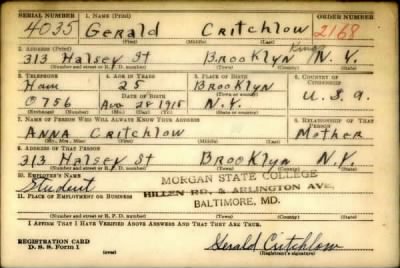 SERIAL NUMBER 1. NAME (Print) ORDER NUMBER
4035 Gerald Critchlow 2168
(First) (Middle) (Last)
2. ADDRESS (Print)
313 Halsey St Brooklyn Kings N.Y.
(Number and street or R. F. D. number) (Town) (County) (State)
3. TELEPHONE 4. AGE IN YEARS 5. PLACE OF BIRTH 6. COUNTRY OF CITIZENSHIP
25 Brooklyn
DATE OF BIRTH (Town or county)
0756 Aug 28 1915 N.Y. U.S.A.
(Exchange) (Number) (Mo.) (Day) (Yr.) (State or country)
7. NAME OF PERSON WHO WILL ALWAYS KNOW YOUR ADDRESS 8. RELATIONSHIP OF THAT PERSON
Anna Critchlow Mother
(Mr., Mrs., Miss) (First) (Middle) (Last)
9. ADDRESS OF THAT PERSON
313 Halsey St Brooklyn N.Y.
(Number and street or R. F. D. number) (Town) (County) (State)
10. EMPLOYER'S NAME
Student MORGAN STATE COLLEGE
11. PLACE OF EMPLOYMENT OR BUSINESS HILLEN RD. & ARLINGTON AVE,
BALTIMORE, MD.
(Number and street or R. F. D. number) (Town) (County) (State)
I AFFIRM THAT I HAVE VERIFIED ABOVE ANSWERS AND THAT THEY ARE TRUE.
REGISTRATION CARD
D. S. S. Form 1 (over) Gerald Critchlow
(Registrant's signature)